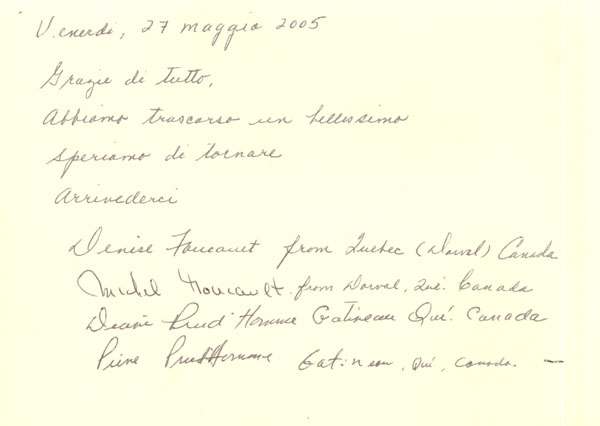 Venerdi, 27 maggio 2005
Grazie di tutto,
Abbiamo trascorso un bellissimo
speriamo di tornare
Arrivederci
Denise Foucault from Quebec (Dorval) Canada
Michel Foucault from Dorval, Qué. Canada
Diane Prud'Homme Gatineau Qué. Canada
Pierre Prud'Homme Gatineau, Qué, Canada. —